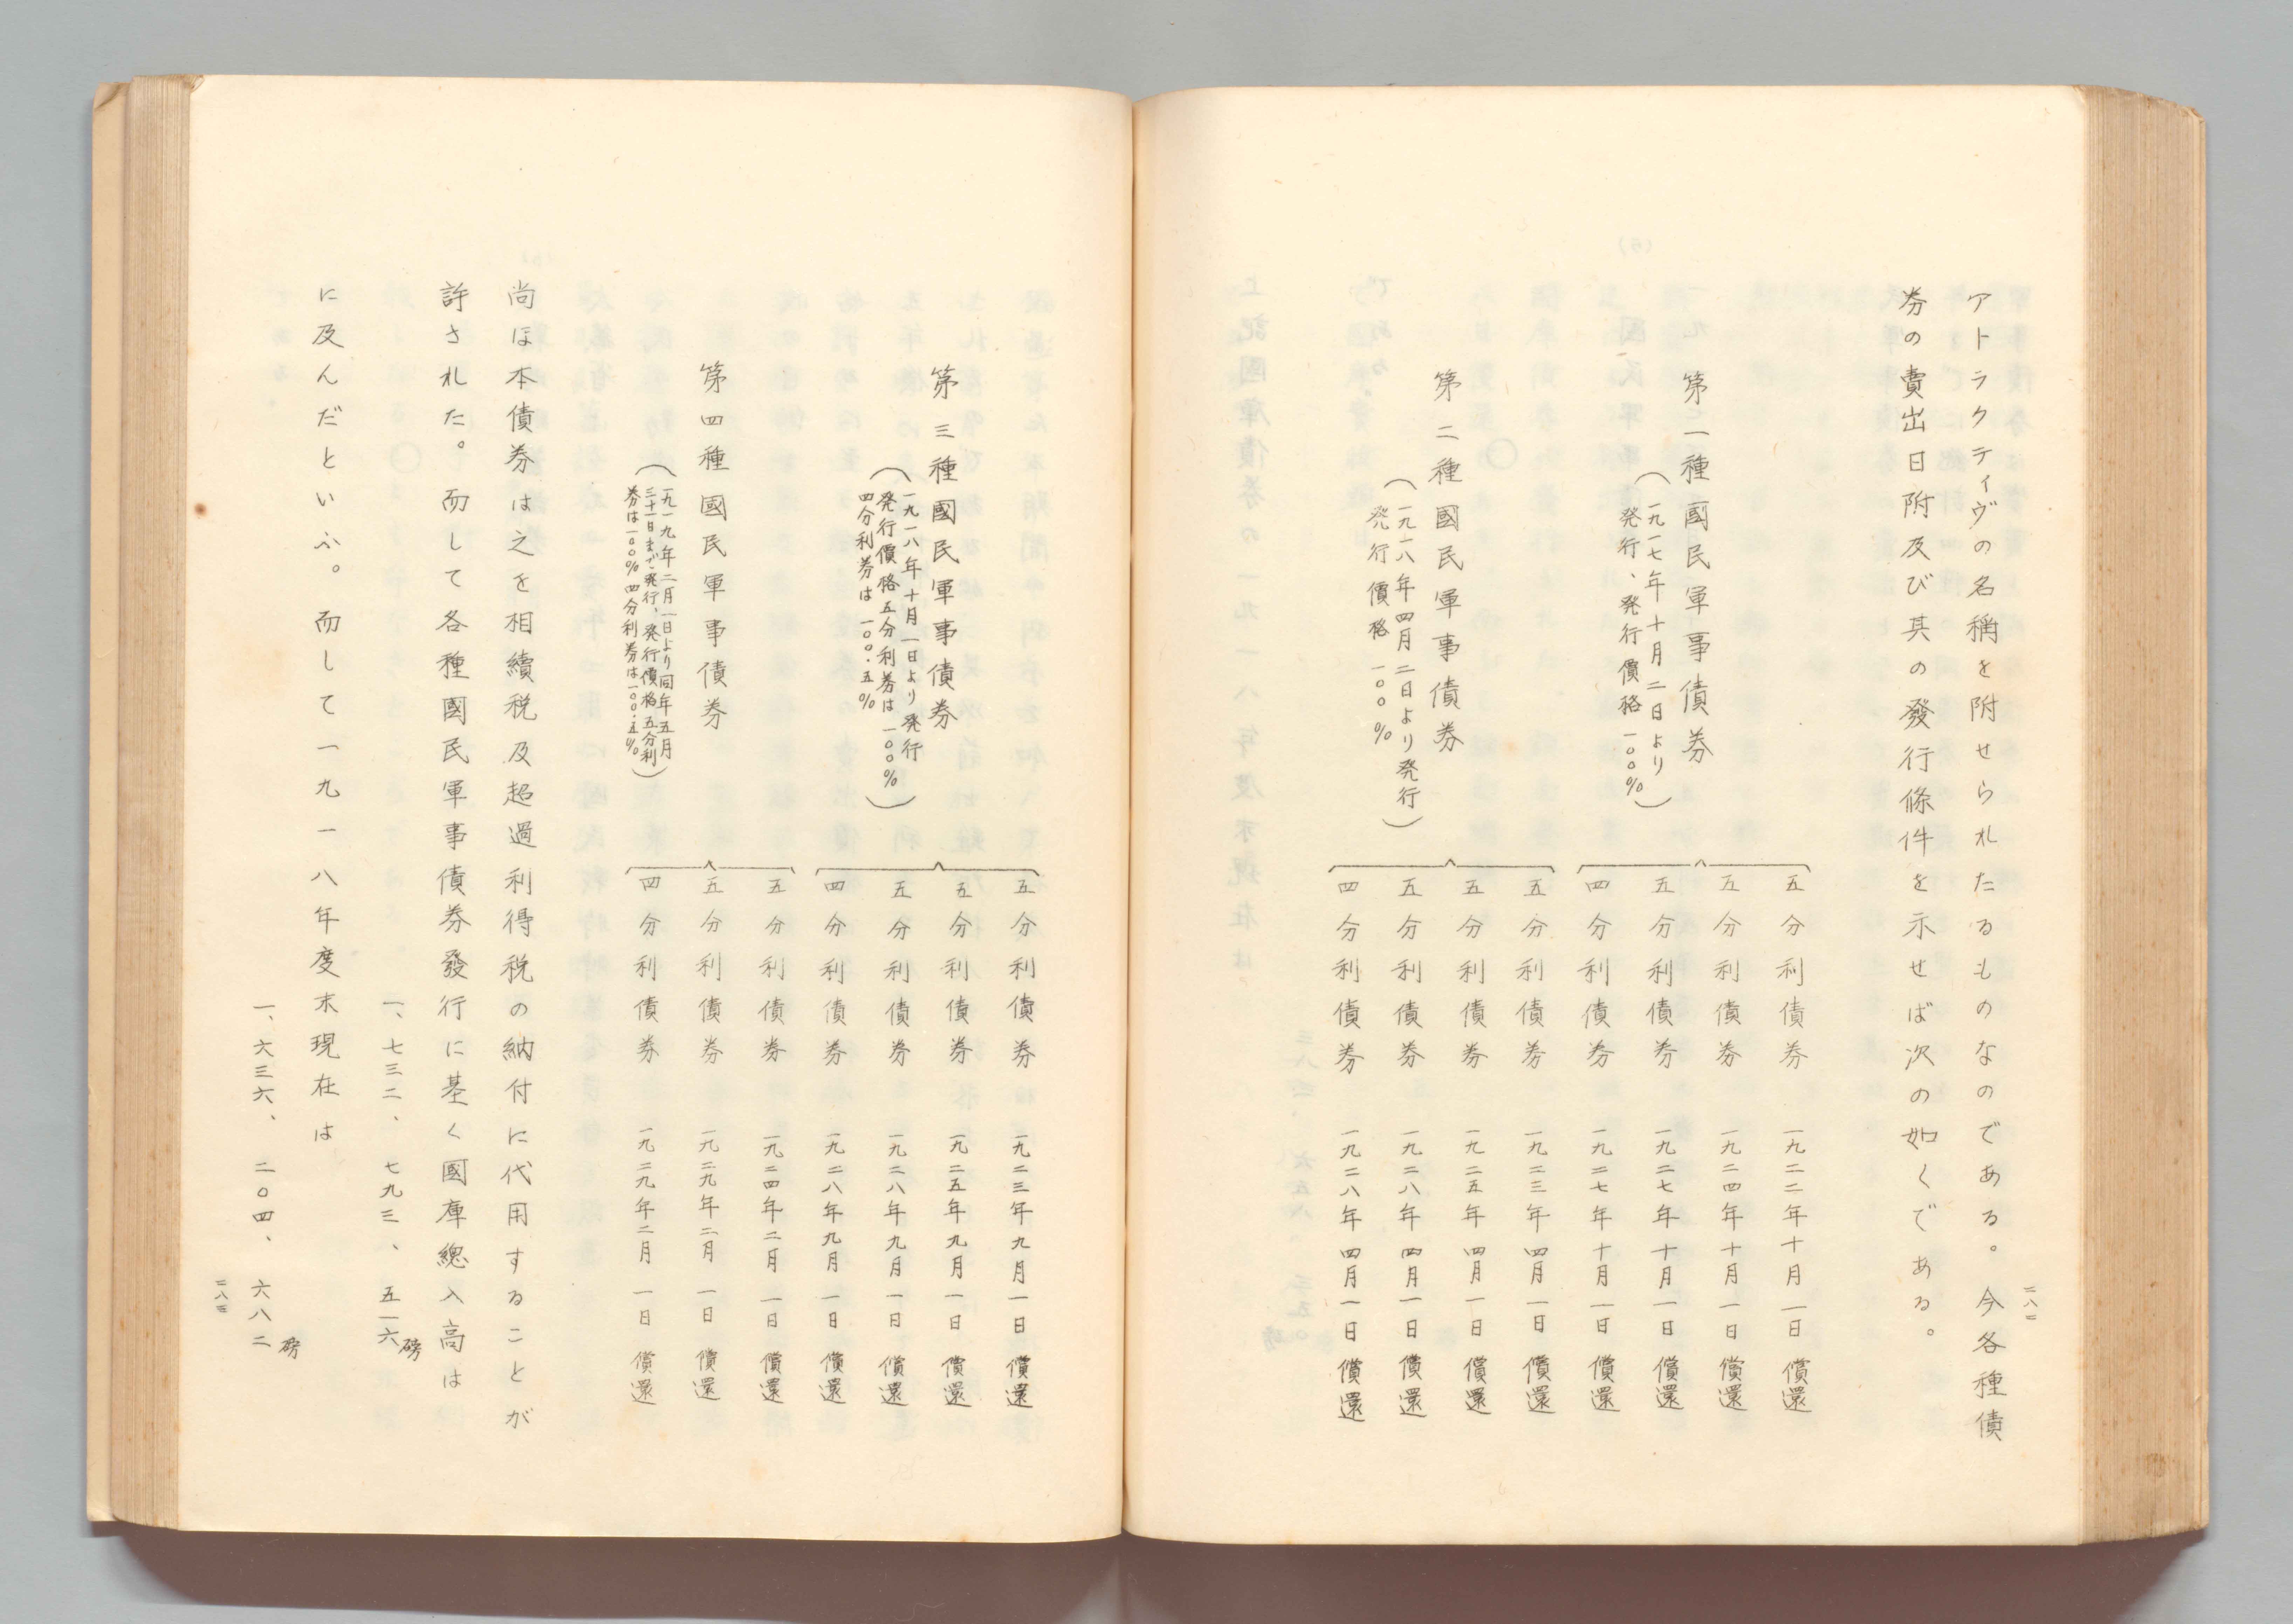 アトラクティヴの名稱を附せられたるものなのである。今各種債
券の賣出日附及び其の發行條件を示せば次の如くである。
第一種國民軍事債券
(一九一七年十月二日より
発行、発行價格一〇〇%)
五分利債券 一九二二年十月一日償還
五分利債券 一九二四年十月一日償還
五分利債券 一九二七年十月一日償還
四分利債券 一九二七年十月一日償還
第二種國民軍事債券
(一九一八年四月二日より発行
発行價格一〇〇%)
五分利債券 一九二三年四月一日償還
五分利債券 一九二五年四月一日償還
五分利債券 一九二八年四月一日償還
四分利債券 一九二八年四月一日償還
二八二
第三種國民軍事債券
(一九一八年十月一日より発行
発行價格五分利券は一〇〇%
四分利券は一〇〇.五%)
五分利債券 一九二三年九月一日償還
五分利債券 一九二五年九月一日償還
五分利債券 一九二八年九月一日償還
四分利債券 一九二八年九月一日償還
第四種國民軍事債券
(一九一九年二月一日より同年五月
三十一日まで発行、発行價格五分利
券は一〇〇%四分利券は一〇〇.五%)
五分利債券 一九二四年二月一日償還
五分利債券 一九二九年二月一日償還
四分利債券 一九二九年二月一日償還
尚ほ本債券は之を相續税及超過利得税の納付に代用することが
許された。而して各種國民軍事債券發行に基く國庫總入高は
一、七三二、七九三、五一六磅
に及んだといふ。而して一九一八年度末現在は
一、六三六、二〇四、六八二磅
二八三